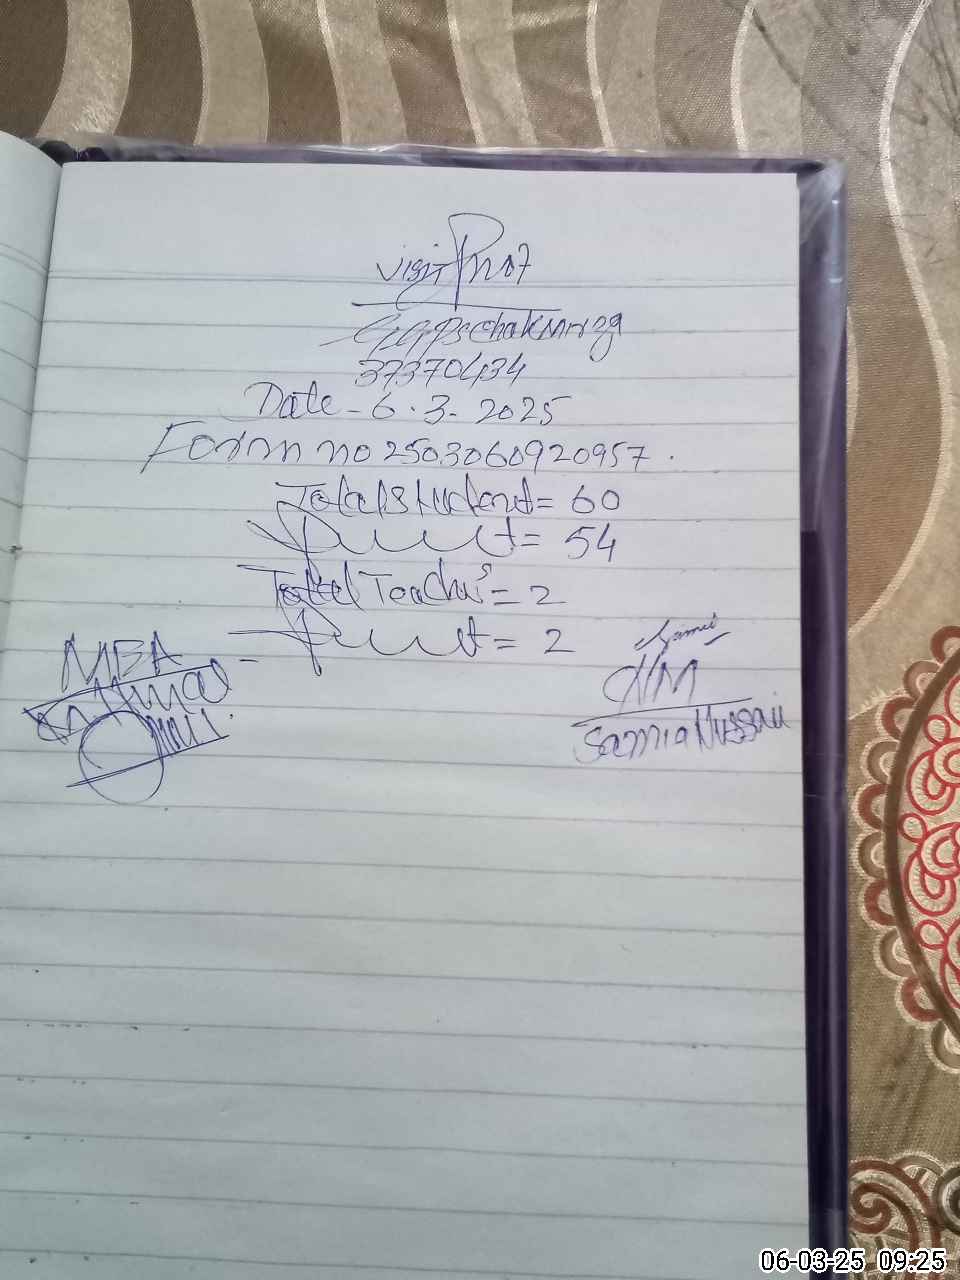 visit Proof
GGPS chak
37370434
Date - 6.3-2025
Form no 2503060920957.
Total student = 60
Present = 54
Total Teachers = 2
Present = 2
MEA
H/M
Samia Hussain
06-03-25 09:25